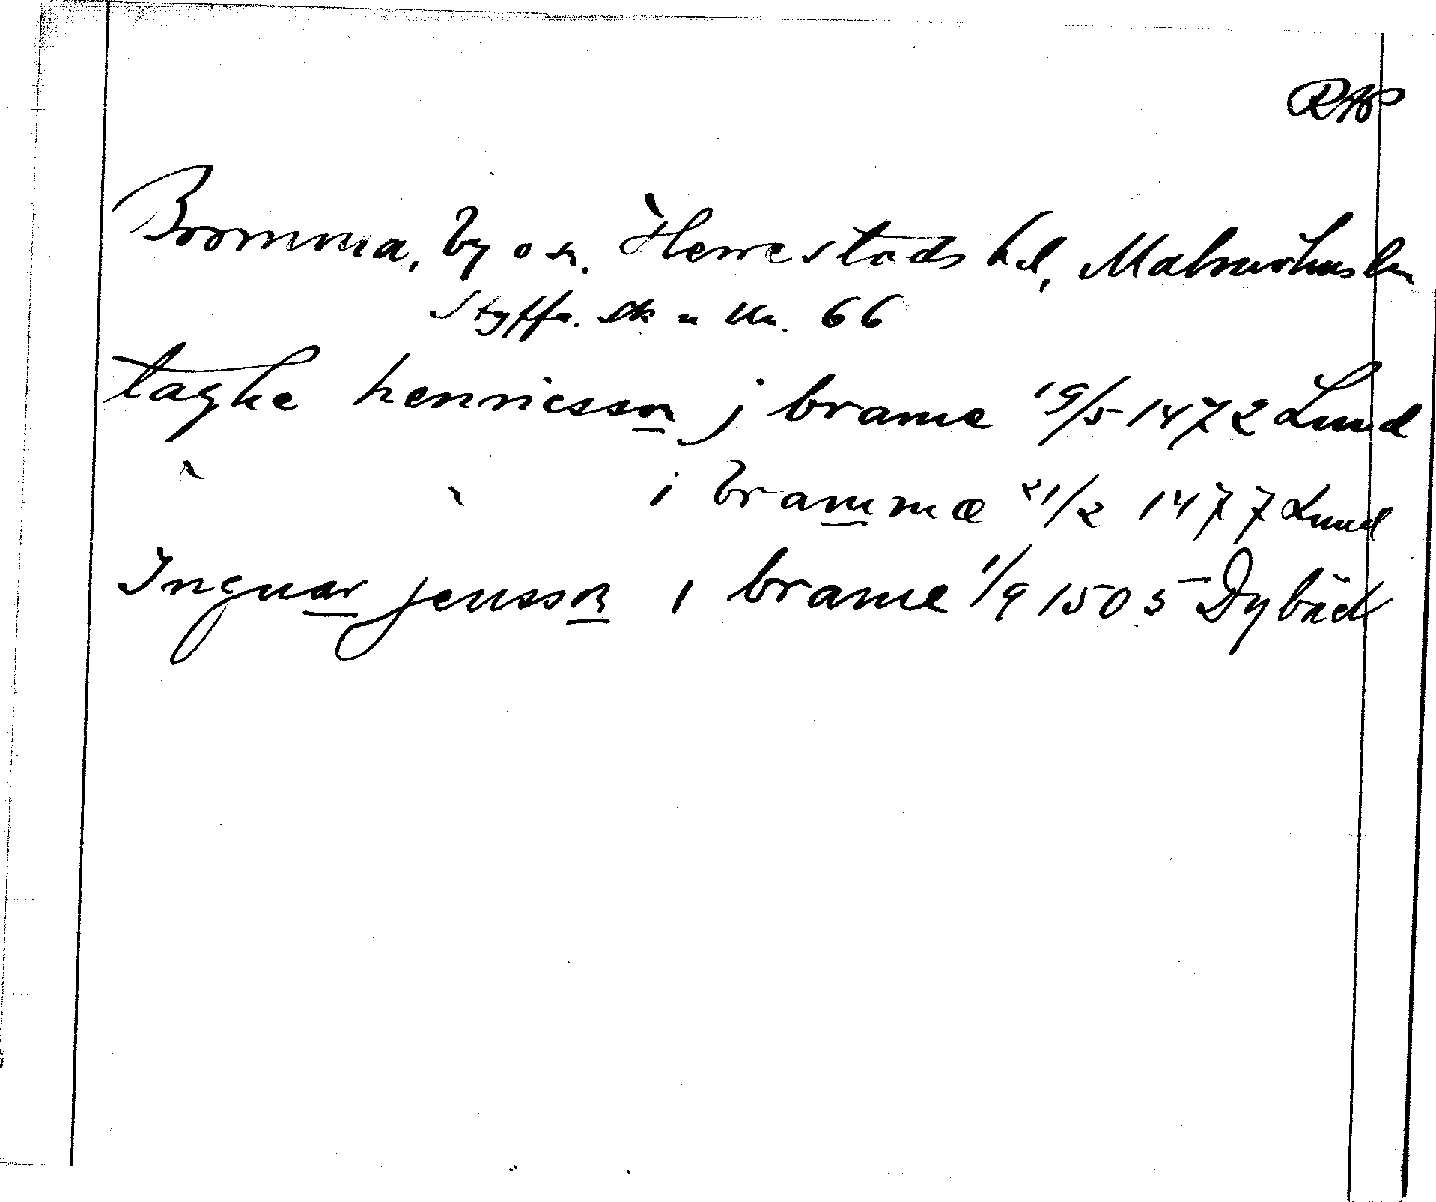 RAP
Bromma, by o sn. Herrestads hd, Malmöhus län
Styffe. Sk u Un. 66
taghe henricsson j brame 19/5 1472 Lund
" " i brammæ 21/2 1477 Lund
Inguar jensson i brame 1/9 1505 Dybäck